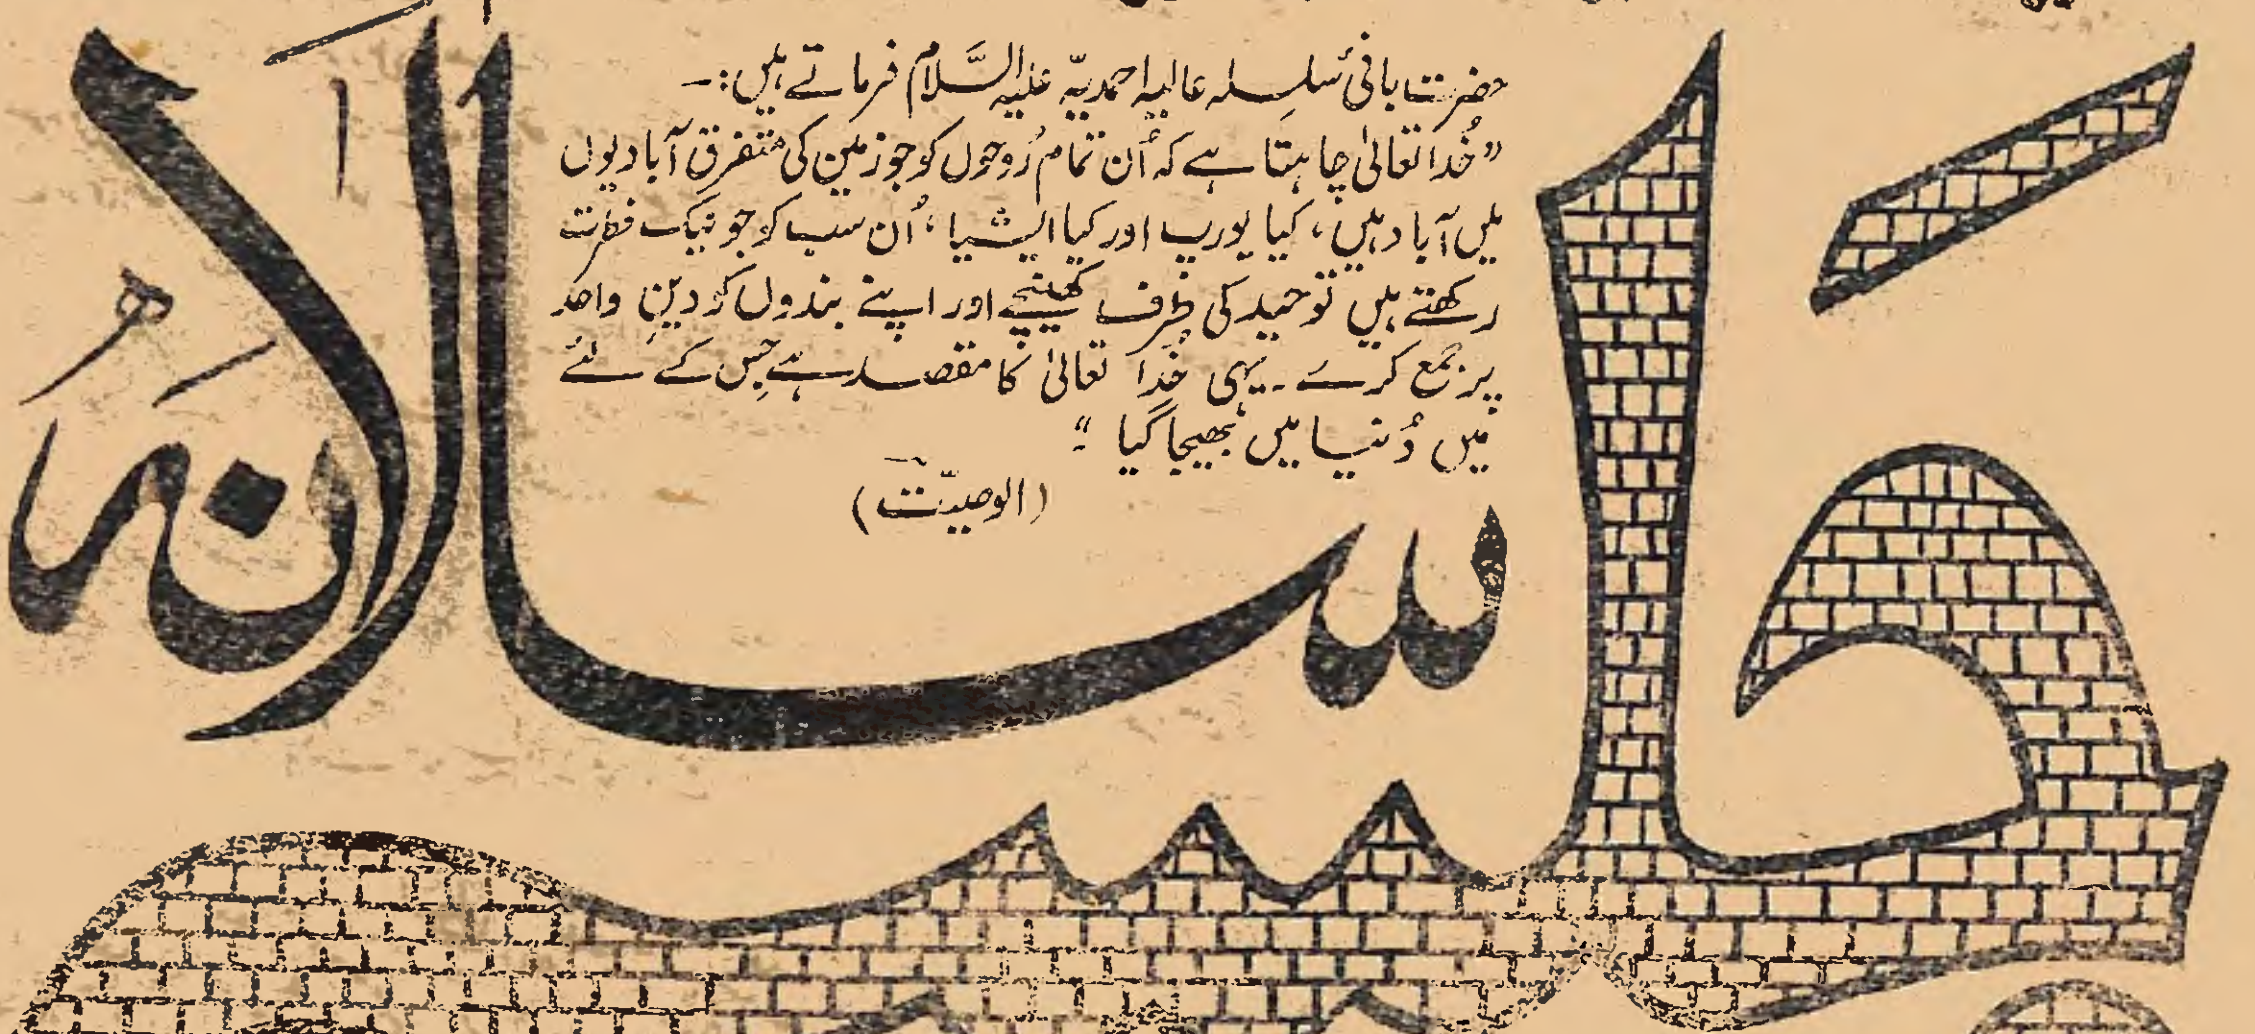 حضرت بانیٔ سلسلہ عالیہ احمدیّہ علیہ السَّلام فرماتے ہیں:۔
"خُدا تعالیٰ چاہتا ہے کہ اُن تمام رُوحوں کو جو زمین کی متفرق آبادیوں
میں آباد ہیں، کیا یورپ اور کیا ایشیا، اُن سب کو جو نیک فطرت
رکھتے ہیں توحید کی طرف کھینچے اور اپنے بندوں کو دینِ واحد
پر جمع کرے ۔ یہی خُدا تعالیٰ کا مقصد ہے جِس کے لئے
میں دُنیا میں بھیجا گیا"
(الوصیّت)
سالانہ
جلسہ